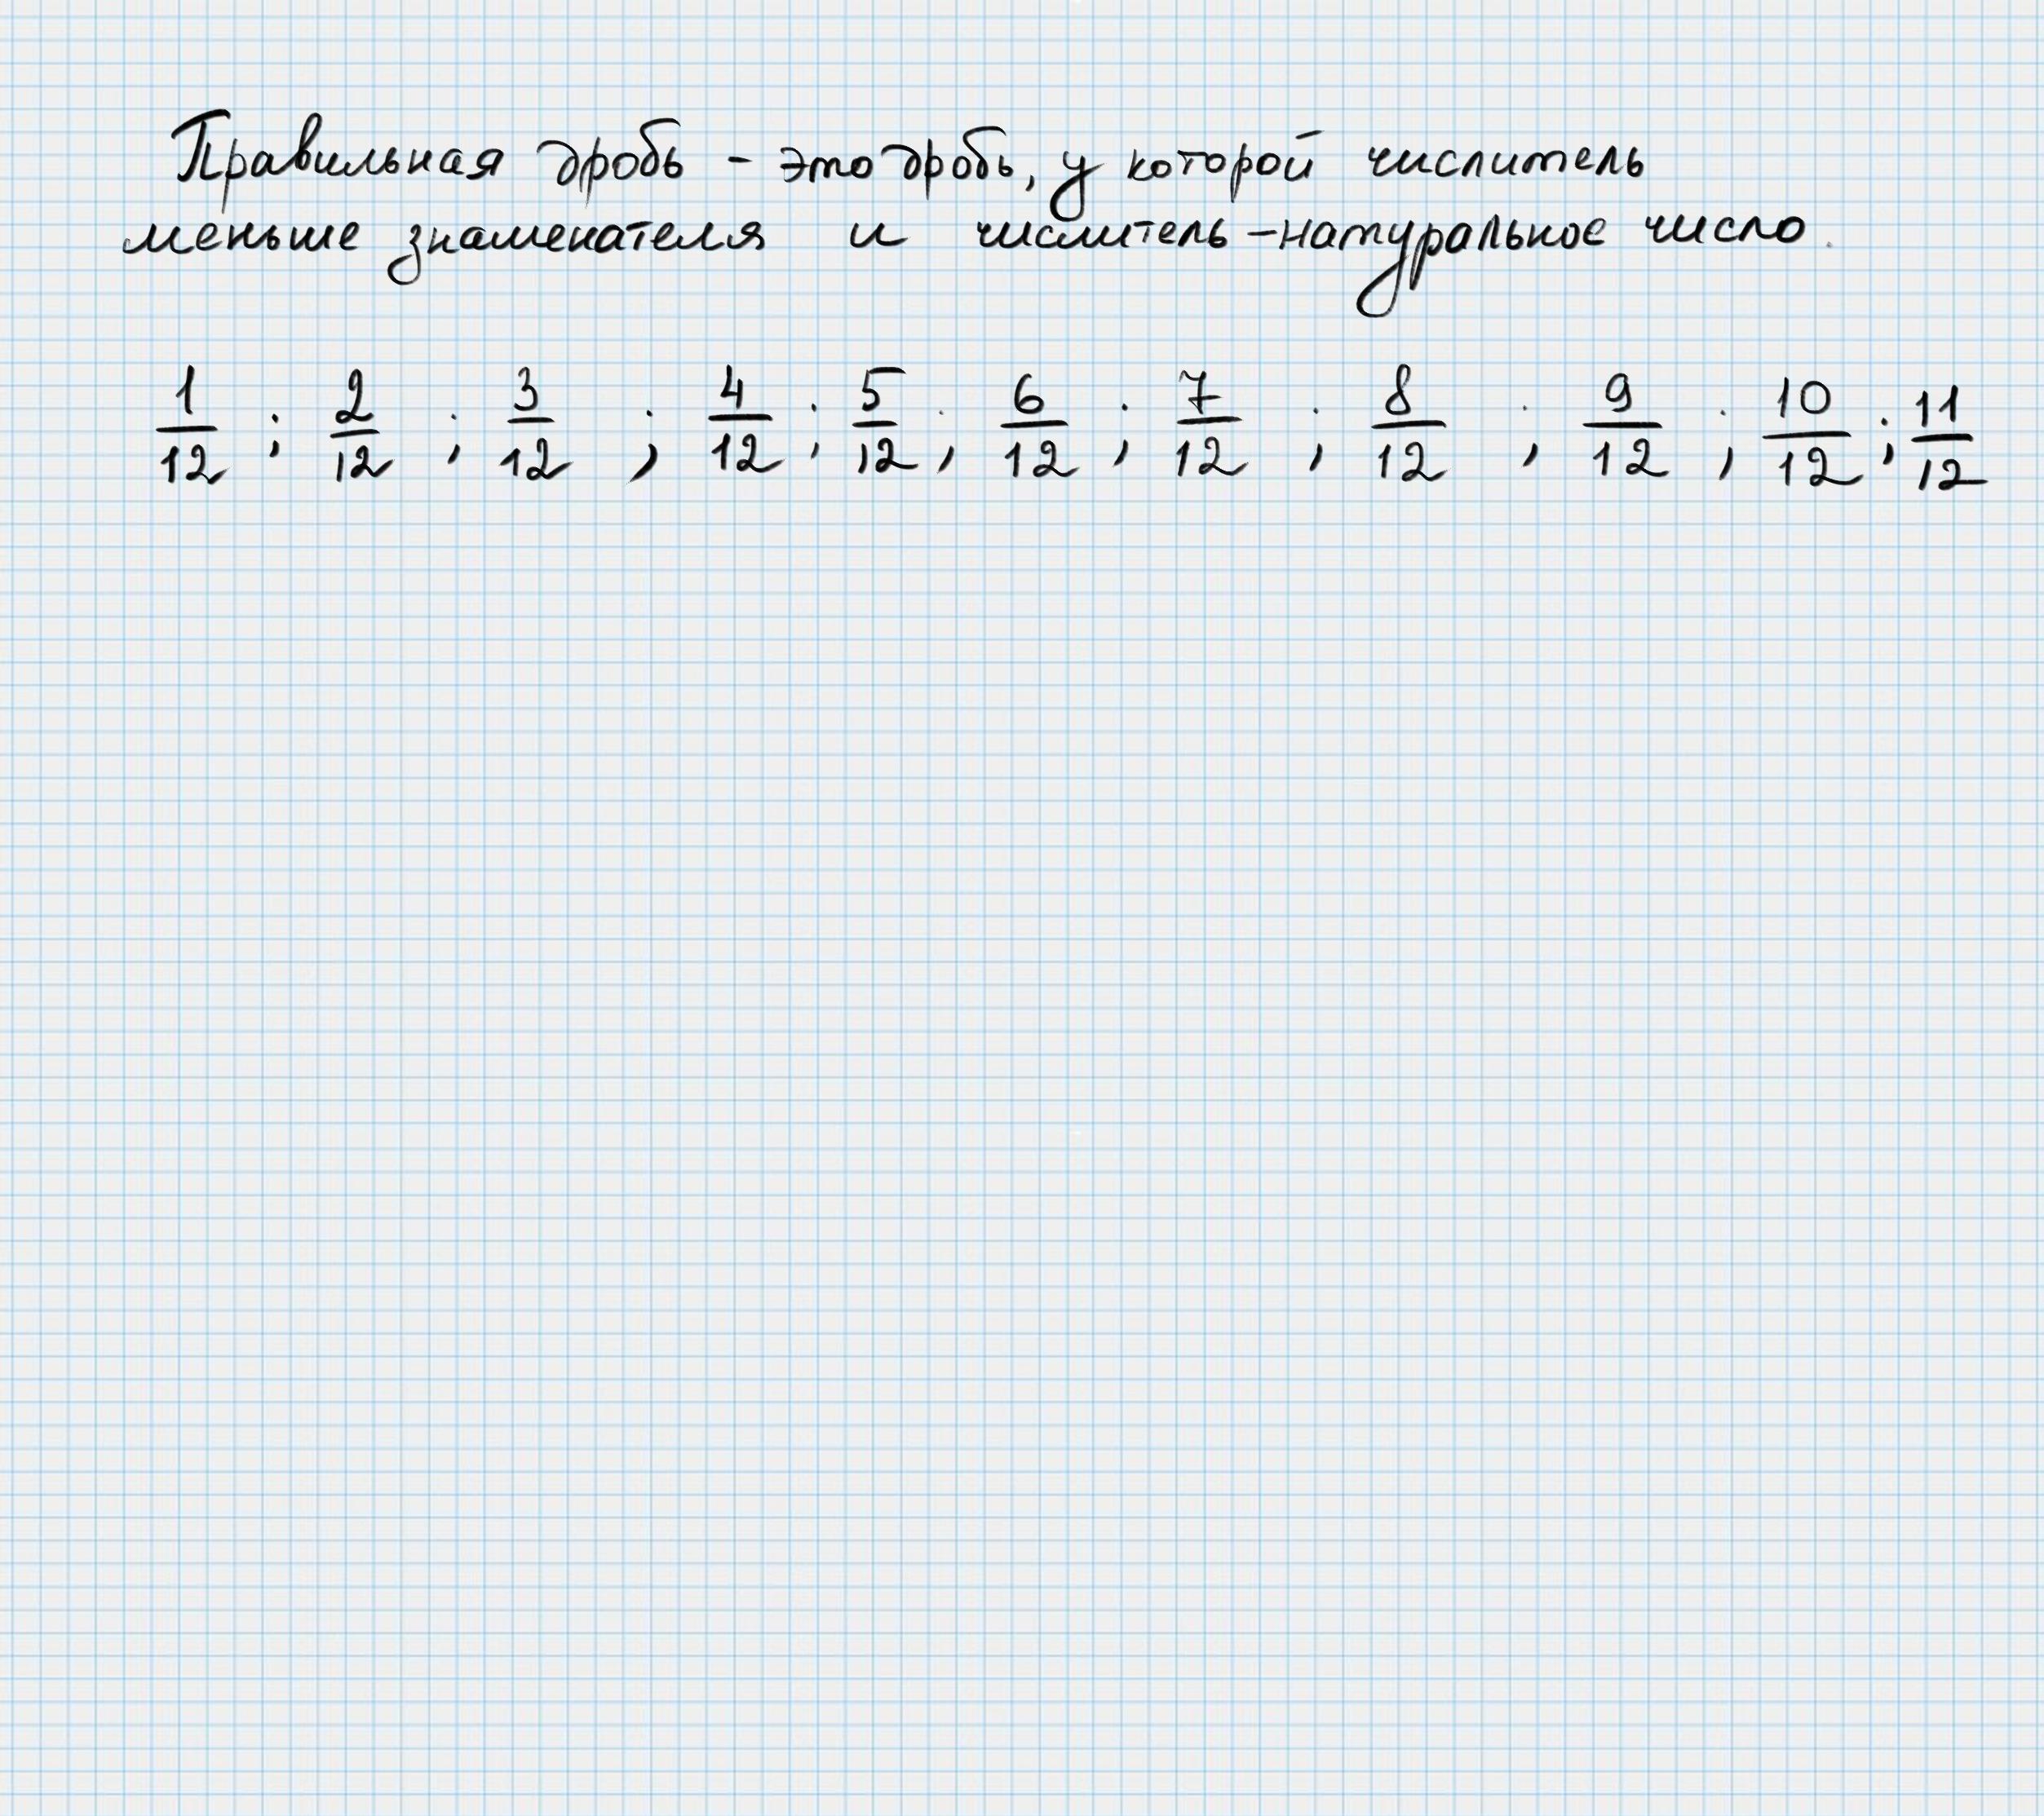 Правильная дробь - это дробь, у которой числитель
меньше знаменателя и числитель - натуральное число.
1/12 ; 2/12 ; 3/12 ; 4/12 ; 5/12 ; 6/12 ; 7/12 ; 8/12 ; 9/12 ; 10/12 ; 11/12